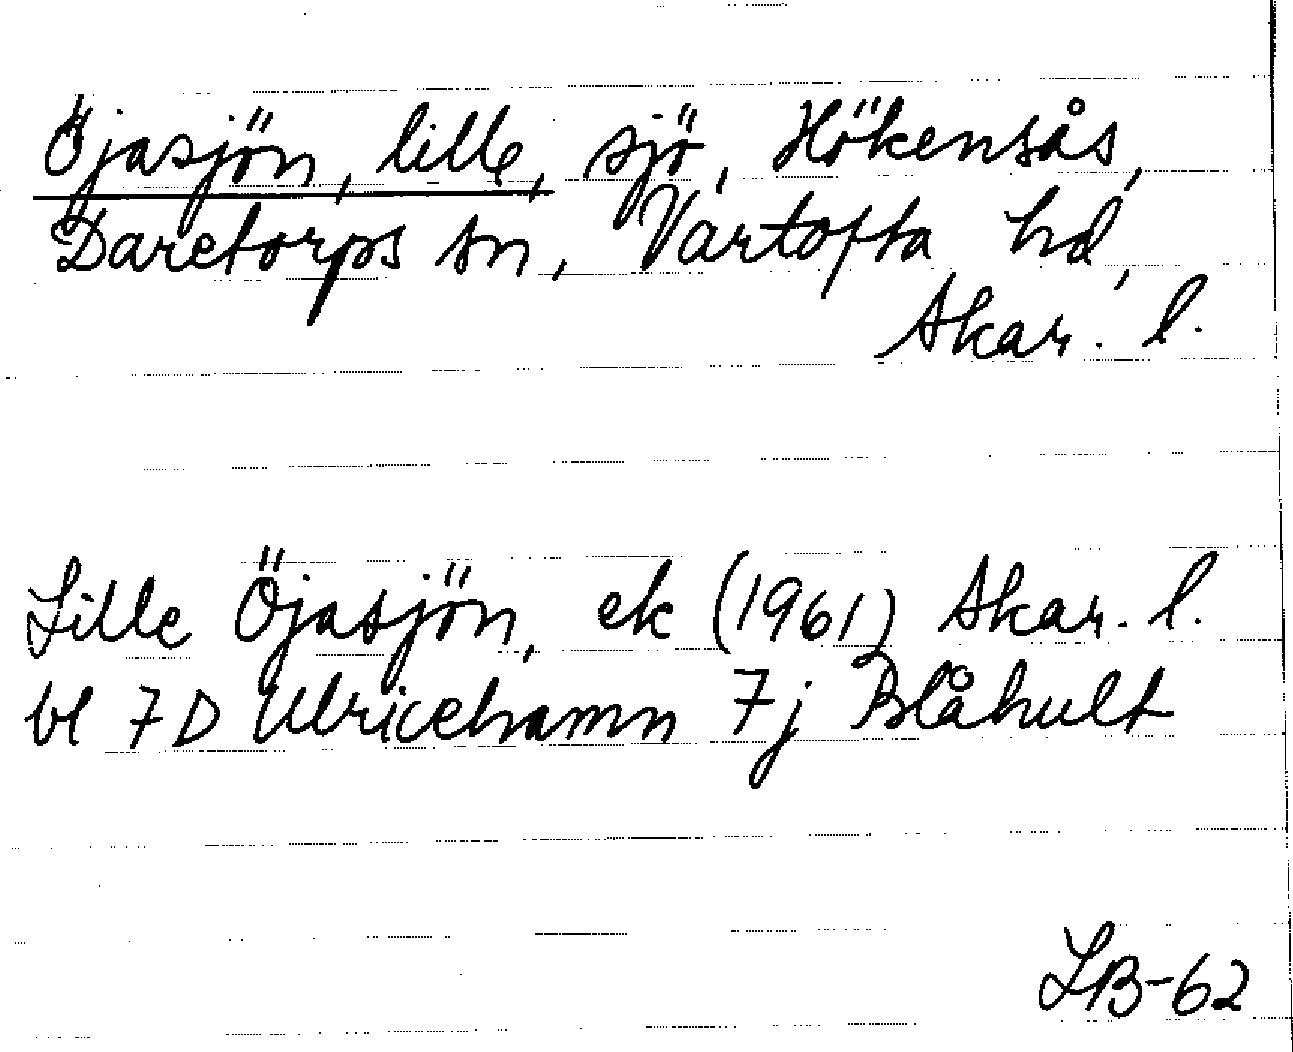 Öjasjön, lille, sjö, Hökensås,
Daretorps sn, Vartofta hd,
Skar. l.
Lille Öjasjön, ek (1961) Skar. l.
bl 7D Ulricehamn 7j Blåhult
LB-62